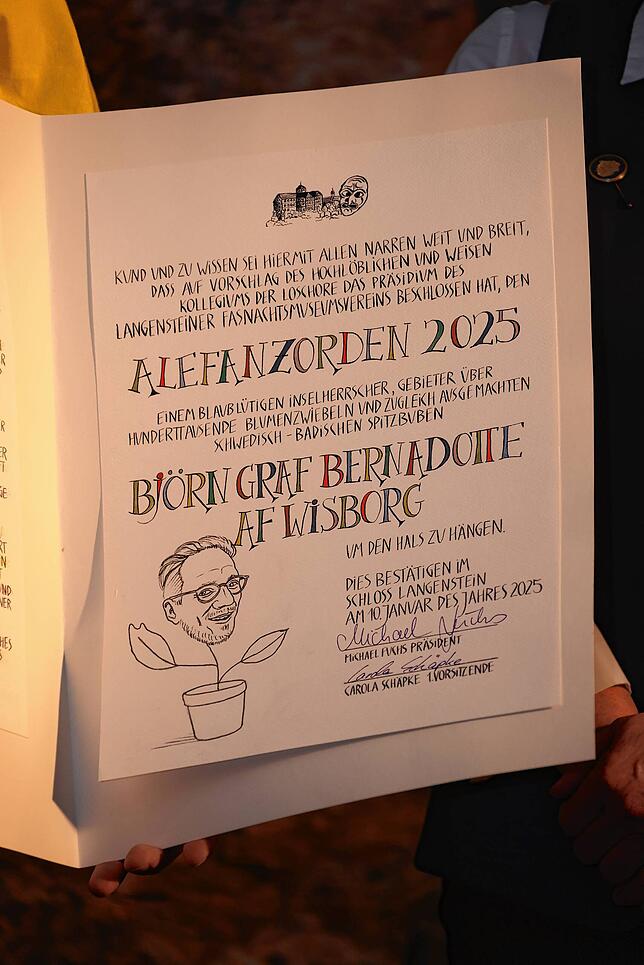 KUND UND ZU WISSEN SEI HIERMIT ALLEN NARREN WEIT UND BREIT,
DASS AUF VORSCHLAG DES HOCHLÖBLICHEN UND WEISEN
KOLLEGIUMS DER LOSCHORE DAS PRÄSIDIUM DES
LANGENSTEINER FASNACHTSMUSEUMSVEREINS BESCHLOSSEN HAT, DEN
ALEFANZORDEN 2025
EINEM BLAUBLÜTIGEN INSELHERRSCHER, GEBIETER ÜBER
HUNDERTTAUSENDE BLUMENZWIEBELN UND ZUGLEICH AUSGEMACHTEN
SCHWEDISCH-BADISCHEN SPITZBUBEN
BJÖRN GRAF BERNADOTTE
AF WISBORG
UM DEN HALS ZU HÄNGEN.
DIES BESTÄTIGEN IM
SCHLOSS LANGENSTEIN
AM 10. JANUAR DES JAHRES 2025
Michael Fuchs
MICHAEL FUCHS PRÄSIDENT
Carola Schäpke
CAROLA SCHÄPKE 1.VORSITZENDE